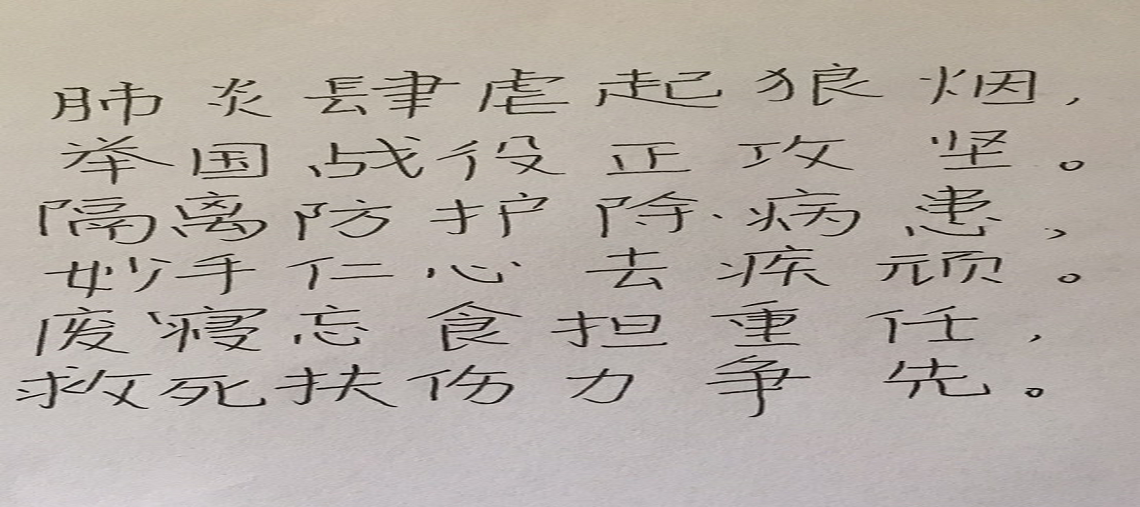 肺炎肆虐起狼烟,
举国战役正攻坚。
隔离防护除病患,
妙手仁心去疾顽。
废寝忘食担重任,
救死扶伤力争先。